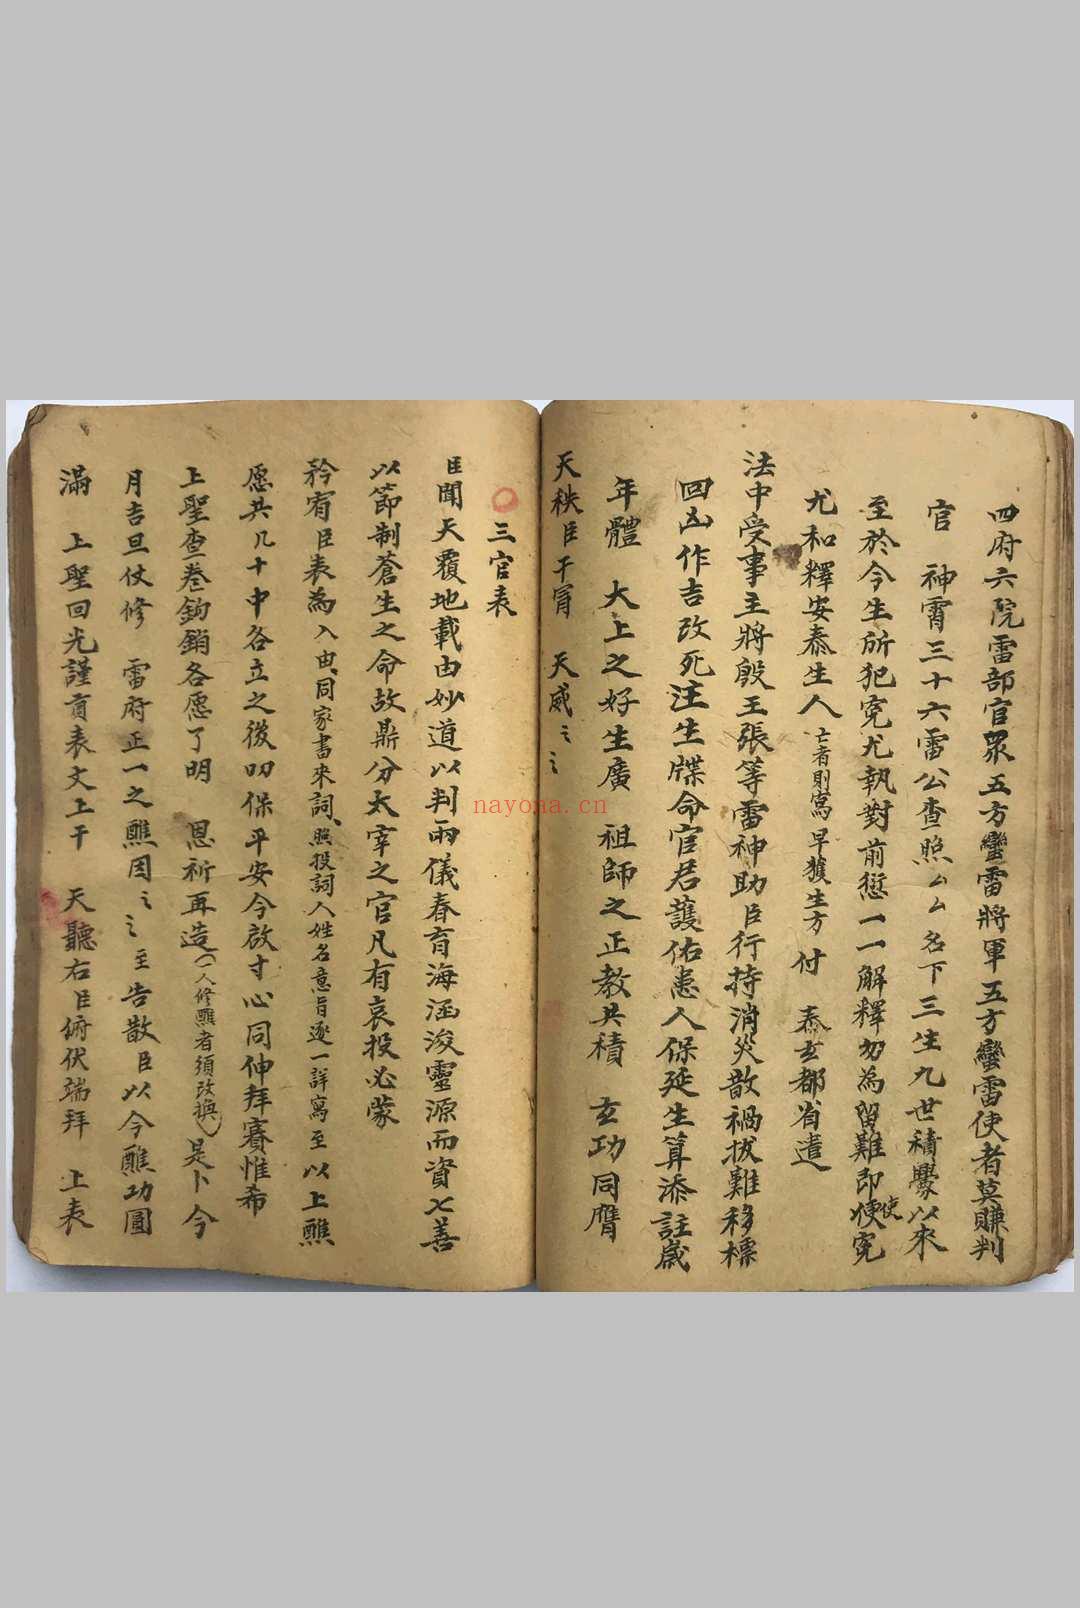 四府六院雷部官眾五方蠻雷將軍五方蠻雷使者莫賺判
官　神霄三十六雷公查照厶厶名下三生九世積釁以來
至於今生所犯冤尤執對前愆一一解釋勿為留難即便使冤
尤和釋安泰生人亡者則寫早獲生方付　泰玄都省遣
法中受事主將殷王張等雷神助臣行持消災散禍拔難移標
回凶作吉改死注生牒命官君護佑恚人保延生算添註歲
年體　大上之好生廣　祖師之正教共積　玄功同膺
天秩臣干冐　天威〻〻
三官表
臣聞天覆地載由妙道以判兩儀春育海涵浚靈源而資七善
以節制蒼生之命故鼎分太宰之官凡有哀投必蒙
矜宥臣表為入由、同家書來詞、照投詞人姓名意旨逐一詳寫至以上醮
愿共几十中各立之後叨保平安今啟寸心同伸拜賽惟希
上聖查卷鉤銷各愿了明　恩祈再造（一人修醮者須改換）是卜今
月吉旦仗修　雷府正一之醮因〻〻至告散臣以今醮功圓
滿　上聖回光謹賫表文上干　天聽右臣俯伏端拜　上表
nayona.cn